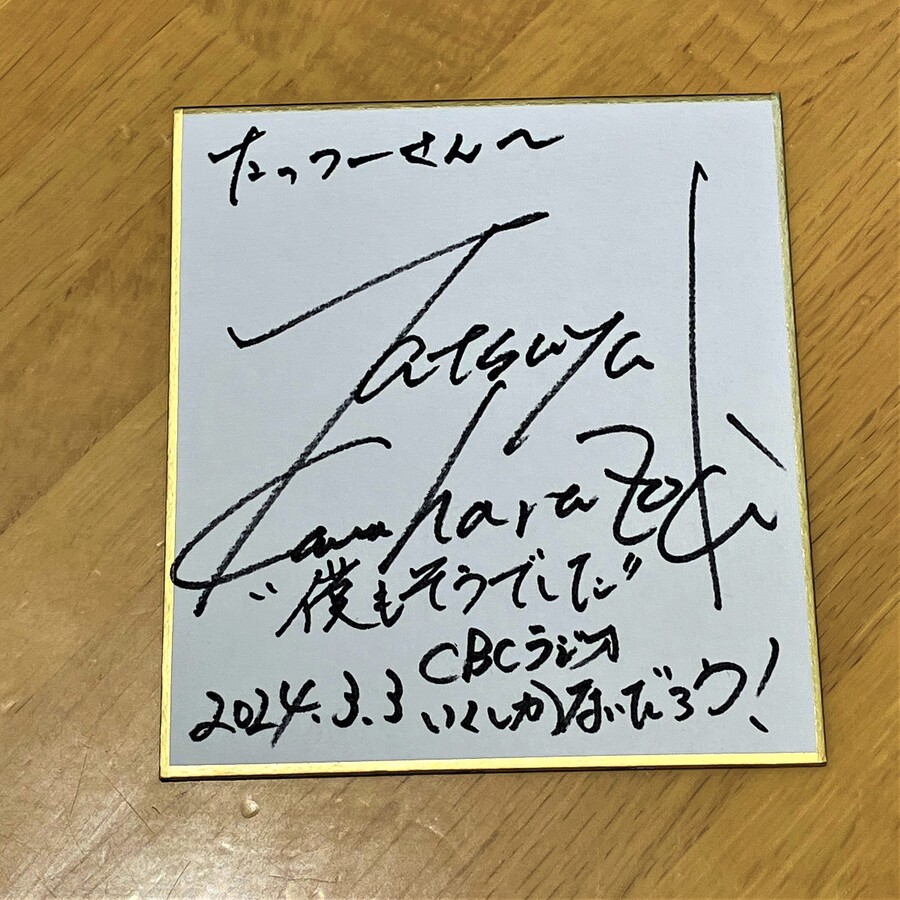 たっつーさんへ
Tatsuya
Kawahara Zoki
"僕もそうでした"
CBCラジオ
2024.3.3 いくしかないだろう!